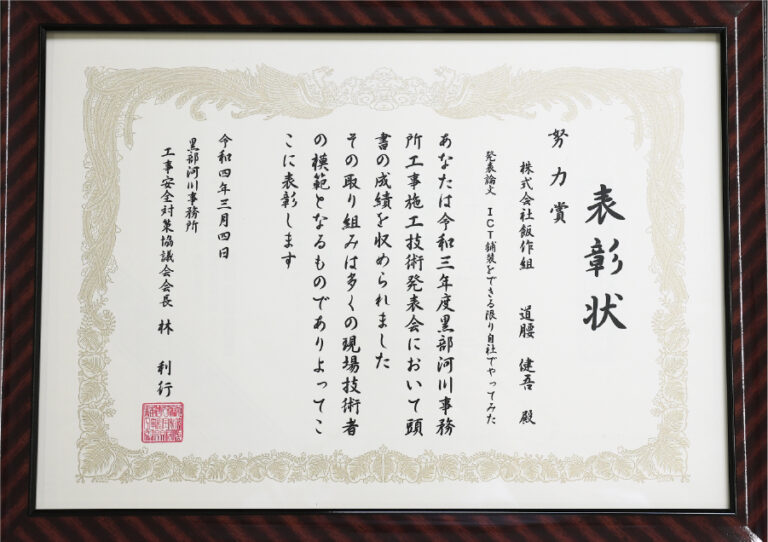 表彰状
努力賞
株式会社飯作組 道腰 健吾 殿
発表論文 ICT舗装をできる限り自社でやってみた
あなたは令和三年度黒部河川事務
所工事施工技術発表会において頭
書の成績を収められました
その取り組みは多くの現場技術者
の模範となるものでありよってこ
こに表彰します
令和四年三月四日
黒部河川事務所
工事安全対策協議会会長 林 利行